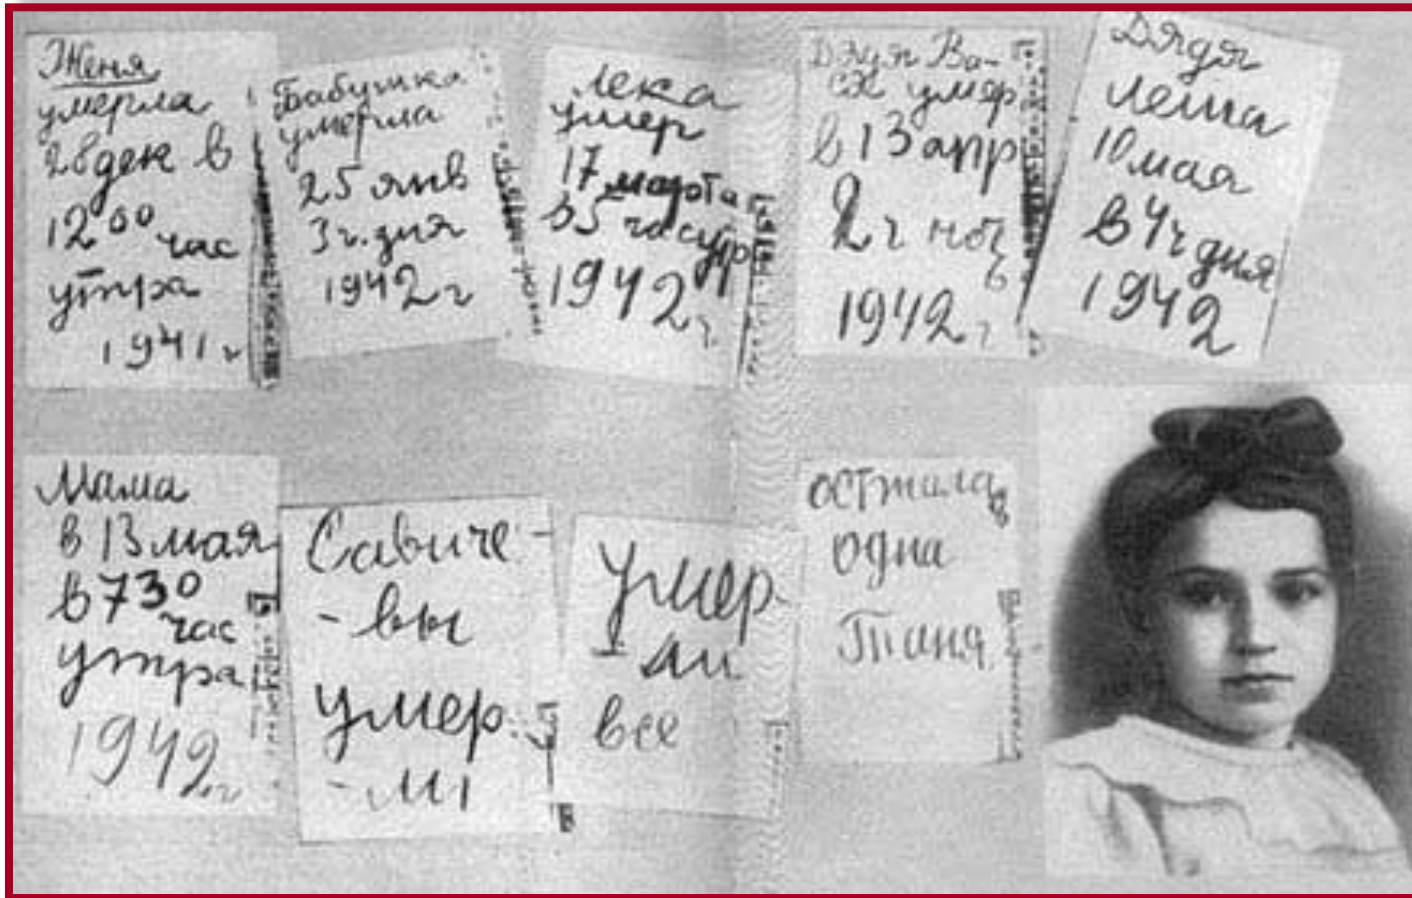 Женя
умерла
28 дек в
12 00 час
утра
1941 г
Бабушка
умерла
25 янв
3 ч. дня
1942 г
Лека
умер
17 марта
в 5 час утр
1942 г.
Дядя Ва-
ся умер
в 13 апр
2 ч ночь
1942 г
Дядя
Леша
10 мая
в 4 ч дня
1942
Мама
в 13 мая
в 730
час
утра
1942 г
Савиче-
-вы
умер-
-ли
умер-
-ли
все
осталась
одна
Таня.